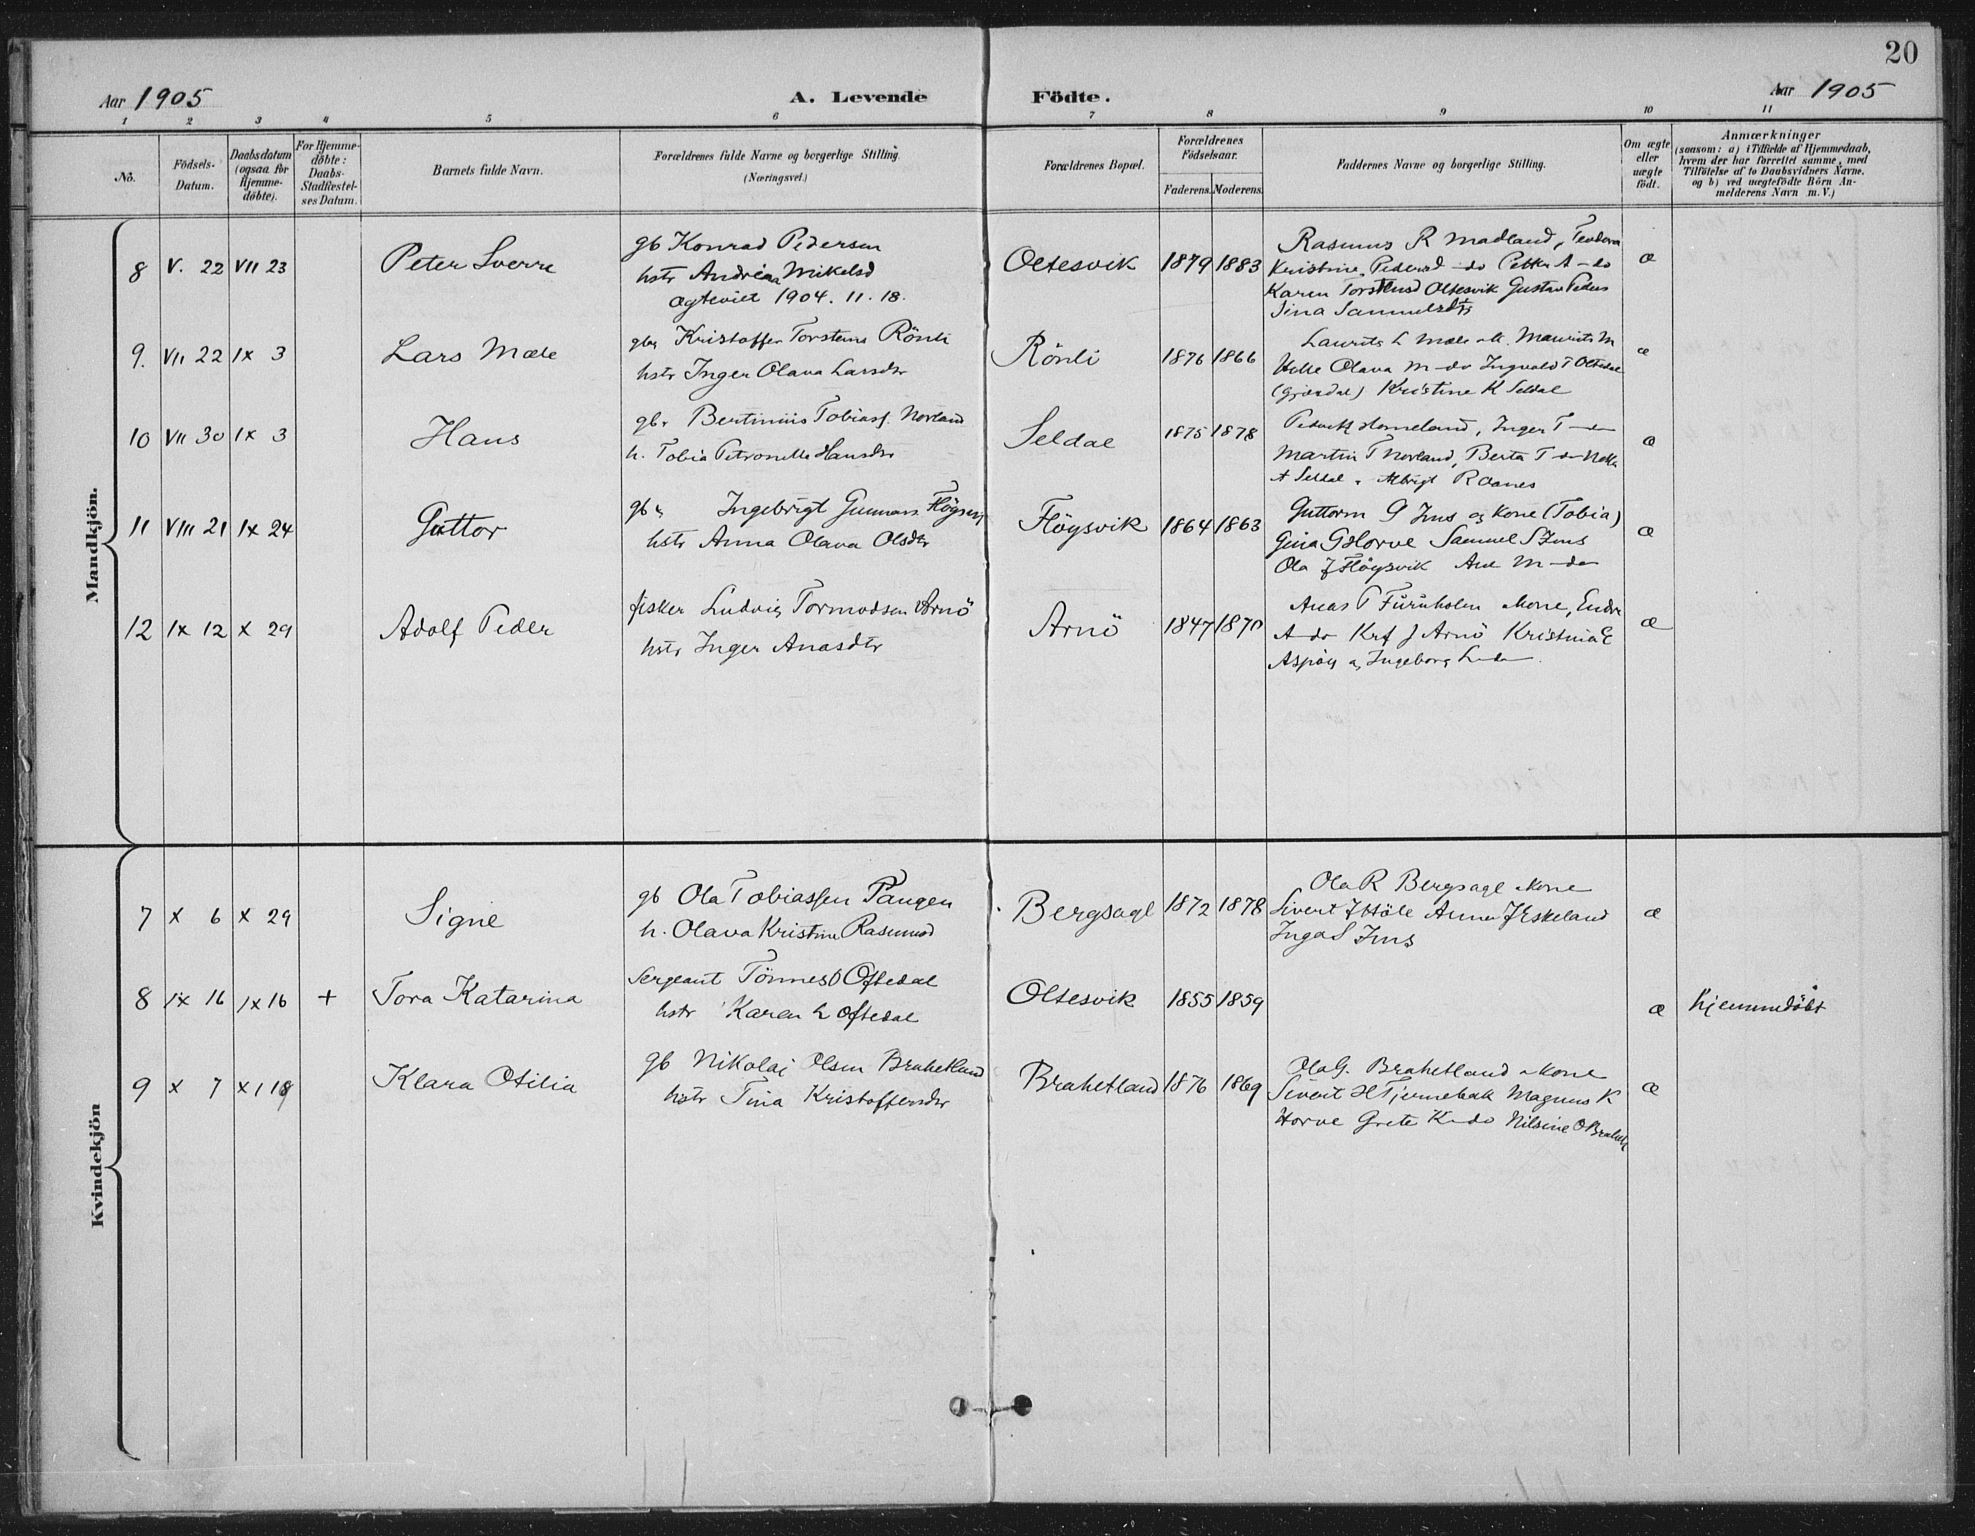 20
Aar 1905
A. Levende Födte.
Aar 1905
1 2 3 4 5 6 7 8 9 10 11
No.
Födsels-
Datum.
Daabsdatum
(ogsaa for
Hjemme-
döbte).
For Hjemme-
döbte:
Daabs-
Stadfæstel-
ses Datum.
Barnets fulde Navn.
Forældrenes fulde Navne og borgerlige Stilling
(Næringsvei.)
Forældrenes Bopæl.
Forældrenes
Födselsaar.
Faderens. Moderens.
Faddernes Navne og borgerlige Stilling.
Om ægte
eller
uægte
födt.
Anmærkninger
(saasom: a) i Tilfælde af Hjemmedaab,
hvem der har forrettet samme, med
Tilföielse af to Daabsvidners Navne,
og b) ved uægtefödte Börn An-
melderens Navn m. V.)
Mandkjön.
8 V. 22 VII 23 Peter Sverre
gb Konrad Pedersen
hstr Andréa Mikelsd
Ægteviet 1904. 11. 18.
Oltesvik 1879 1883
Rasmus R Madland, Teodora
Kristine Pedersd - do Petter A - do
Karen Torstensd Oltesvik Gustav Peders
Sina Samuelsdtr
æ
9. VII 22 IX 3 Lars Mæle
gbr Kristoffer Torstens Rönli
hstr Inger Olava Larsdtr
Rönli 1876 1866
Laurits L Mæle Maurits M
Helle Olava M - do Ingvald T Oltedal
(Gjesdal) Kristine K Seldal
æ
10 VII 30 IX 3 Hans
gbr Bertinius Tobiasf. Norland
h. Tobia Petronelle Hansdtr
Seldal 1875 1878
Homeland, Inger T - do
Martin T Norland, Berta T - do
A Seldal Albrigt R Oanes
æ
11 VIII 21 IX 24 Guttor
gbr Ingebrigt Gunnars Flögsvig
hstr Anna Olava Olsdtr
Flögsvik 1864 1863
Guttorm G Ims og Kone (Tobia)
Gina G Horve Samuel S Ims
Ola J Flögsvik M - do
æ
12 IX 12 X 29 Adolf Peder
fisker Ludvig Tormodsen Arnö
hstr Inger Anasdtr
Arnö 1847 1870
Anas P Furuholen Kone, Endre
A do Krf J Arnö Kristina E
Aspöy og Ingeborg L - do
æ
Kvindekjön
7 X 6 X 29 Signe
gb Ola Tobiassen Tangen
h. Olava Kristine Rasmusd
Bergsagl 1872 1878
Ola R Bergsagl Kone
Sivert J Höle Anna J Eskeland
Inga S Ims
æ
8 IX 16 IX 16 + Tora Katarina
Sergeant Tönnes O Oftedal
hstr Karen L Oftedal
Oltesvik 1855 1859
æ Hjemmedöbt
9 X 7 XI 19 Klara Otilia
gb Nikolai Olsen Brahetland
hstr Tina Kristoffersdtr
Brahetland 1876 1869
Ola G. Brahetland Kone
Sivert H Tjernebak Magnus K
Horve Grete K - do Nilsine O Brahetl
æ